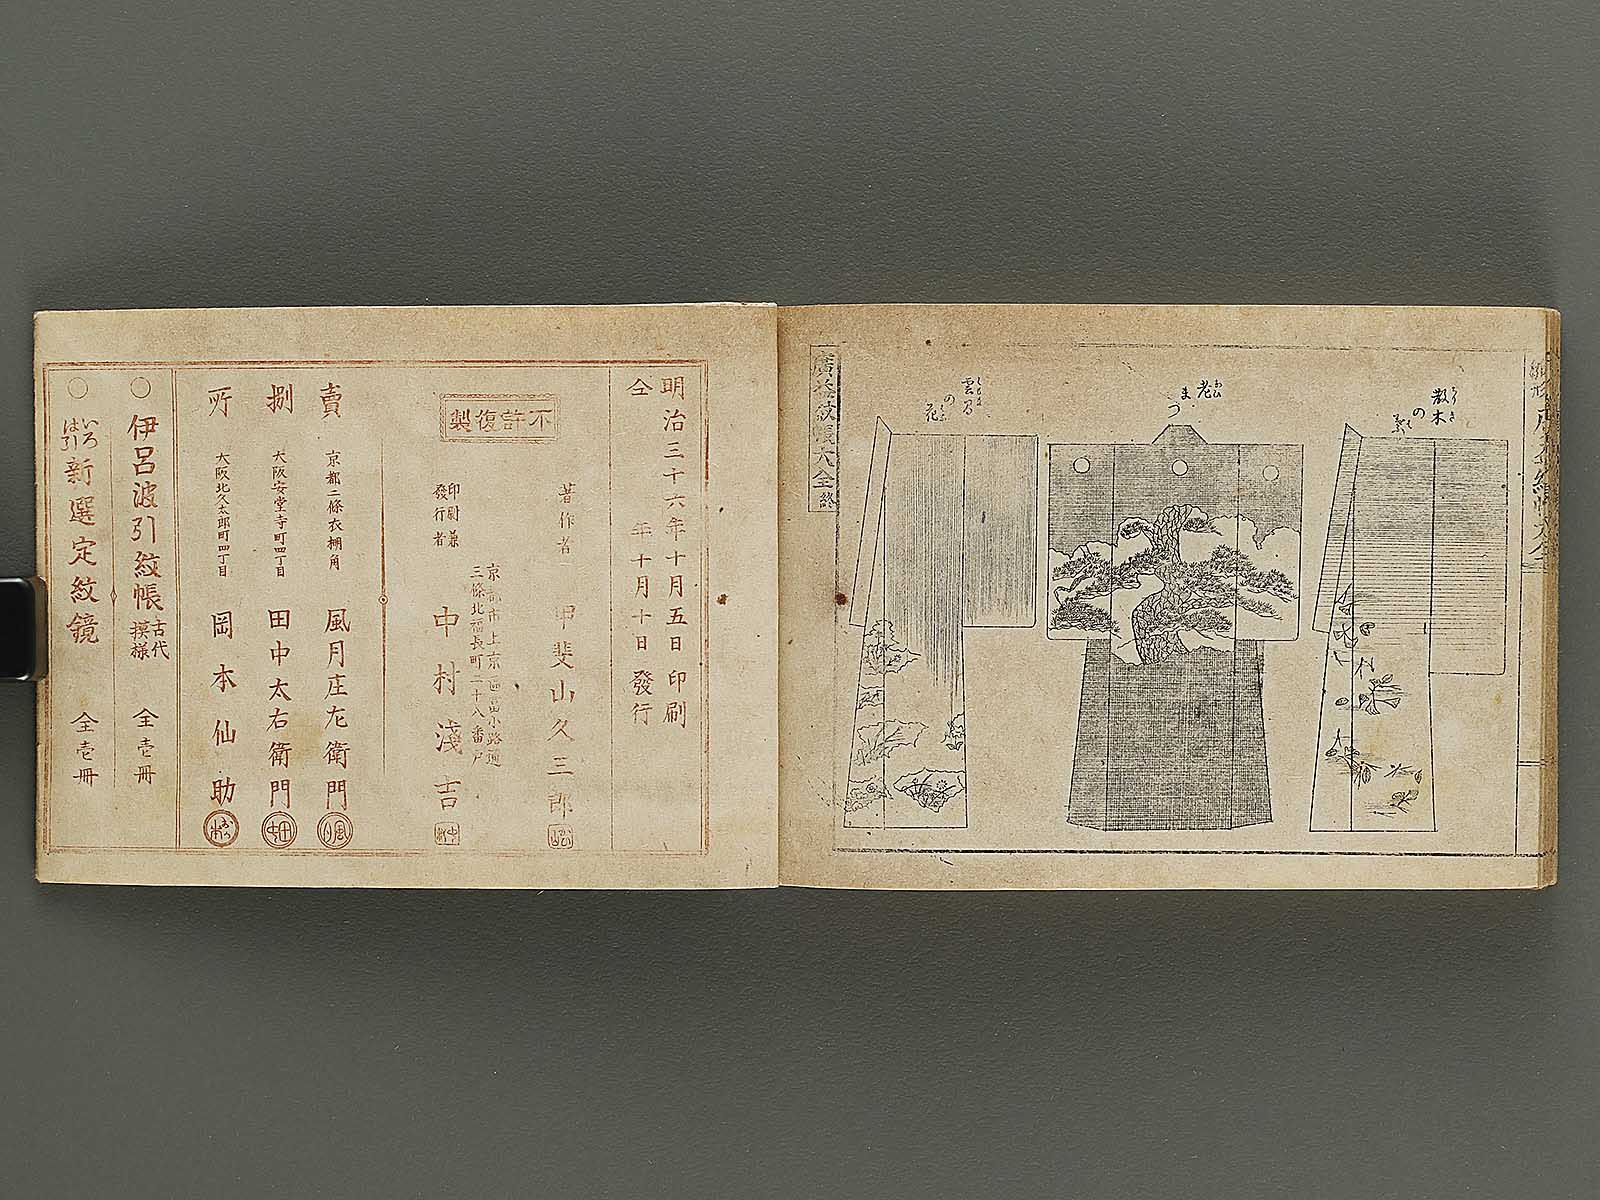 廣益紋帳大全 終
散木の葉
老まつ
雲間の花
明治三十六年十月五日印刷
仝 年十月十日發行
不許復製
著作者 甲斐山久三郎
京都市上京區
三條北福長町二十八番戸
印刷兼
發行者 中村淺吉
賣捌所
京都二條衣棚角 風月庄左衛門
大阪安堂寺町四丁目 田中太右衛門
大阪北久太郎町四丁目 岡本仙助
伊呂波引紋帳 古代模様 全壱冊
いろは引 新選定紋鏡 全壱冊